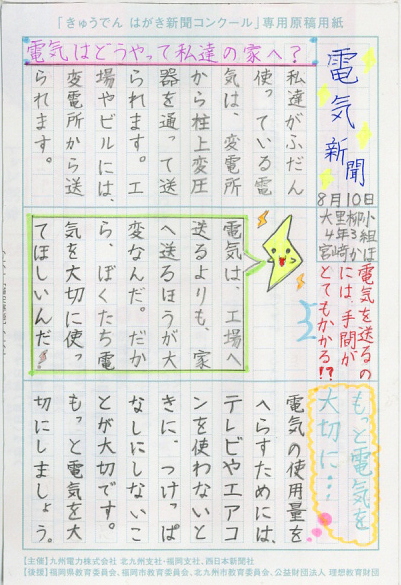 「きゅうでん はがき新聞コンクール」専用原稿用紙
電気新聞
8月10日
大里柳小
4年3組
宮崎かほ
電気はどうやって私達の家へ?
私達がふだん
使っている電
気は、変電所
から柱上変圧
器を通って送
られます。工
場やビルには、
変電所から送
られます。
電気を送るの
には、手間が
とてもかかる!?
電気は、工場へ
送るよりも、家
へ送るほうが大
変なんだ。だか
ら、ぼくたち電
気を大切に使っ
てほしいんだ!
もっと電気を
大切に…
電気の使用量を
へらすためには、
テレビやエアコ
ンを使わないと
きに、つけっぱ
なしにしないこ
とが大切です。
もっと電気を大
切にしましょう。
【主催】九州電力株式会社 北九州支社・福岡支社、西日本新聞社
【後援】福岡県教育委員会、福岡市教育委員会、北九州市教育委員会、公益財団法人 理想教育財団